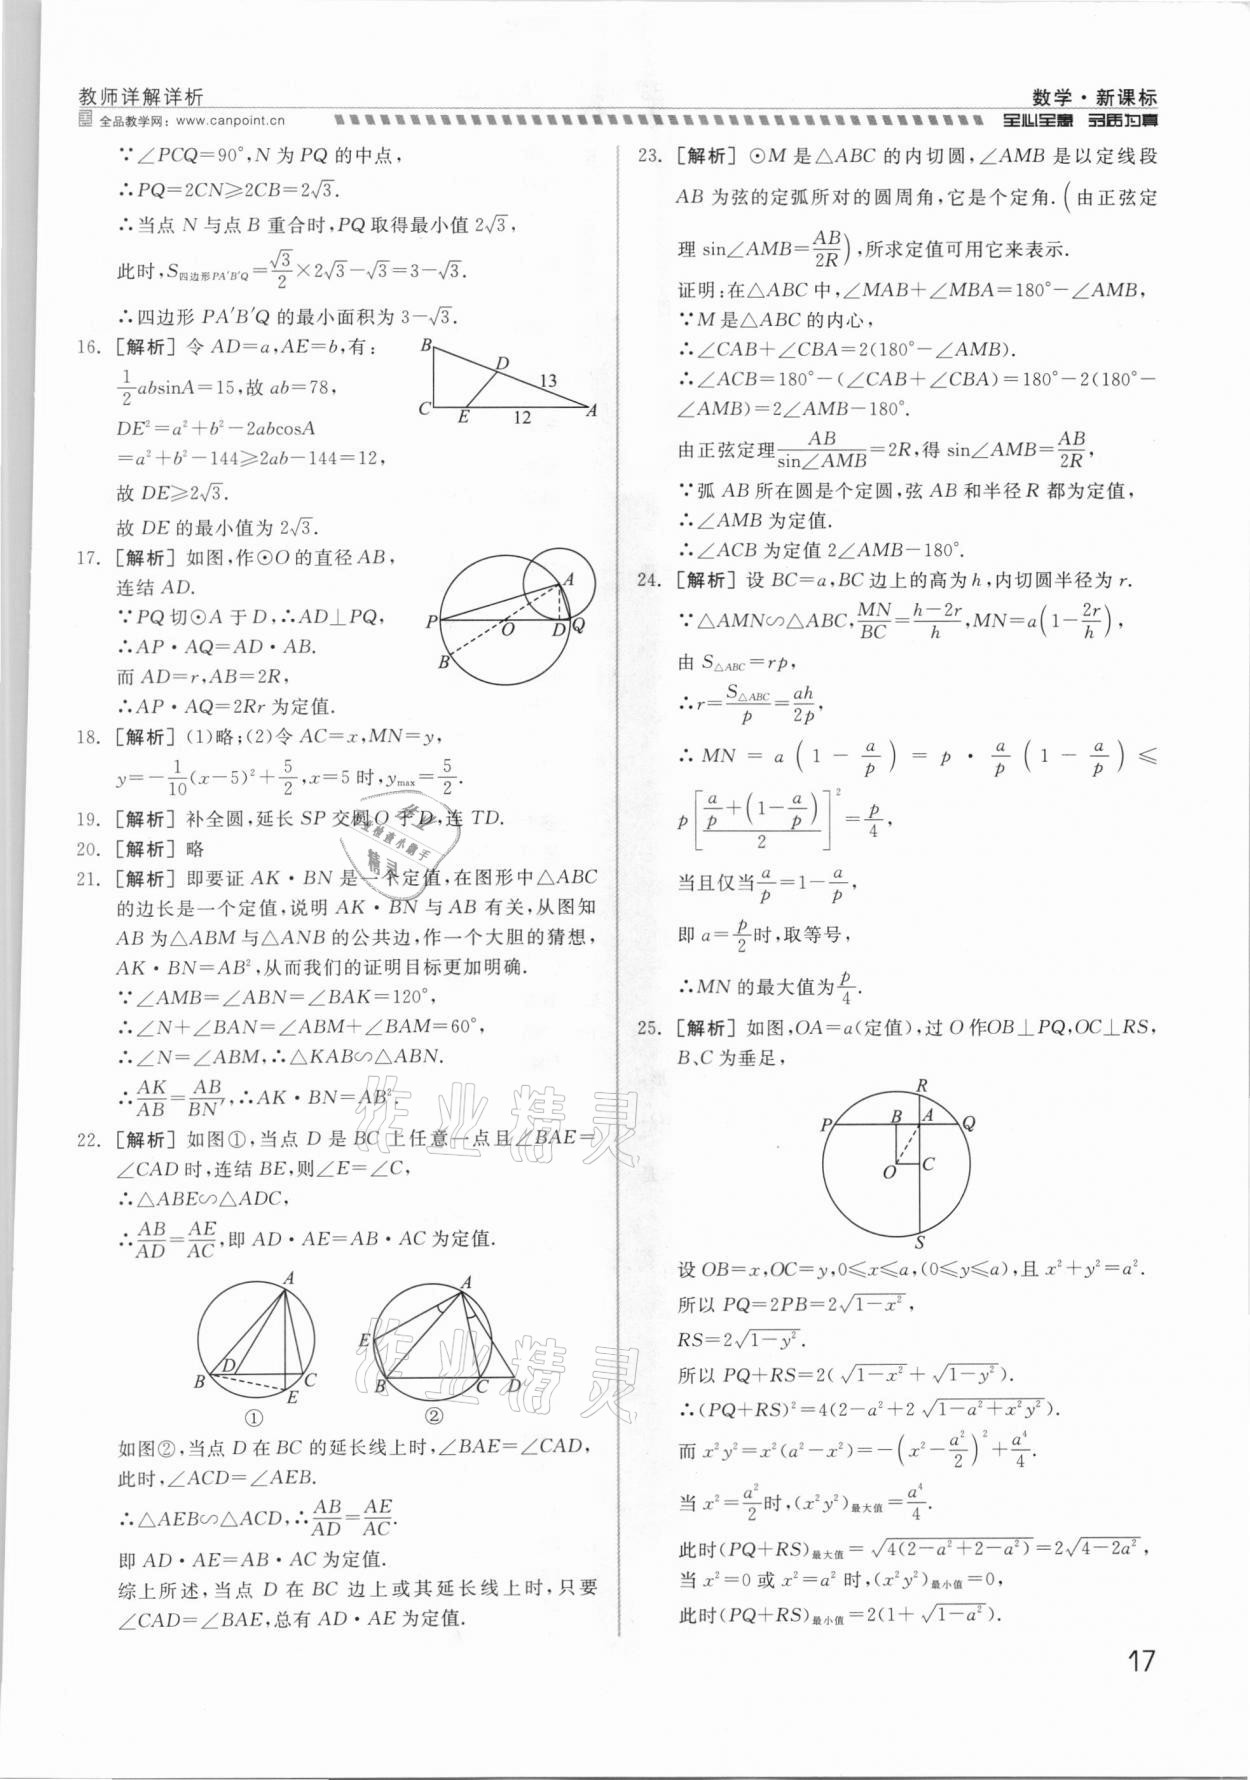 教师详解详析
全品教学网：www.canpoint.cn
数学·新课标
全心全意 品质为真
∵∠PCQ=90°,N 为 PQ 的中点,
∴PQ=2CN≥2CB=2√3.
∴当点 N 与点 B 重合时,PQ 取得最小值 2√3,
此时,S四边形PA′B′Q=√3/2×2√3-√3=3-√3.
∴四边形 PA′B′Q 的最小面积为 3-√3.
16. [解析] 令 AD=a,AE=b,有:
1/2absinA=15,故 ab=78,
DE²=a²+b²-2abcosA
=a²+b²-144≥2ab-144=12,
故 DE≥2√3.
故 DE 的最小值为 2√3.
B
D
13
C
E
12
A
17. [解析] 如图,作⊙O 的直径 AB,
连结 AD.
∵PQ 切⊙A 于 D,∴AD⊥PQ,
∴AP·AQ=AD·AB.
而 AD=r,AB=2R,
∴AP·AQ=2Rr 为定值.
A
P
O
D
Q
B
18. [解析] (1)略;(2)令 AC=x,MN=y,
y=-1/10(x-5)²+5/2,x=5 时,ymax=5/2.
19. [解析] 补全圆,延长 SP 交圆 O 于 D,连 TD.
20. [解析] 略
21. [解析] 即要证 AK·BN 是一个定值,在图形中△ABC
的边长是一个定值,说明 AK·BN 与 AB 有关,从图知
AB 为△ABM 与△ANB 的公共边,作一个大胆的猜想,
AK·BN=AB²,从而我们的证明目标更加明确.
∵∠AMB=∠ABN=∠BAK=120°,
∴∠N+∠BAN=∠ABM+∠BAM=60°,
∴∠N=∠ABM,∴△KAB∽△ABN.
∴AK/AB=AB/BN,∴AK·BN=AB².
22. [解析] 如图①,当点 D 是 BC 上任意一点且∠BAE=
∠CAD 时,连结 BE,则∠E=∠C,
∴△ABE∽△ADC,
∴AB/AD=AE/AC,即 AD·AE=AB·AC 为定值.
A
B
D
C
E
①
A
E
B
C
D
②
如图②,当点 D 在 BC 的延长线上时,∠BAE=∠CAD,
此时,∠ACD=∠AEB.
∴△AEB∽△ACD,∴AB/AD=AE/AC.
即 AD·AE=AB·AC 为定值.
综上所述,当点 D 在 BC 边上或其延长线上时,只要
∠CAD=∠BAE,总有 AD·AE 为定值.
23. [解析] ⊙M 是△ABC 的内切圆,∠AMB 是以定线段
AB 为弦的定弧所对的圆周角,它是个定角.(由正弦定
理 sin∠AMB=AB/2R),所求定值可用它来表示.
证明:在△ABC 中,∠MAB+∠MBA=180°-∠AMB,
∵M 是△ABC 的内心,
∴∠CAB+∠CBA=2(180°-∠AMB).
∴∠ACB=180°-(∠CAB+∠CBA)=180°-2(180°-
∠AMB)=2∠AMB-180°.
由正弦定理AB/sin∠AMB=2R,得 sin∠AMB=AB/2R,
∵弧 AB 所在圆是个定圆,弦 AB 和半径 R 都为定值,
∴∠AMB 为定值.
∴∠ACB 为定值 2∠AMB-180°.
24. [解析] 设 BC=a,BC 边上的高为 h,内切圆半径为 r.
∵△AMN∽△ABC,MN/BC=(h-2r)/h,MN=a(1-2r/h),
由 S△ABC=rp,
∴r=S△ABC/p=ah/2p,
∴MN=a(1-a/p)=p·a/p(1-a/p)≤
p[(a/p+(1-a/p))/2]²=p/4,
当且仅当a/p=1-a/p,
即 a=p/2时,取等号,
∴MN 的最大值为p/4.
25. [解析] 如图,OA=a(定值),过 O 作OB⊥PQ,OC⊥RS,
B、C 为垂足,
R
P
B
A
Q
O
C
S
设 OB=x,OC=y,0≤x≤a,(0≤y≤a),且 x²+y²=a².
所以 PQ=2PB=2√(1-x²),
RS=2√(1-y²).
所以 PQ+RS=2(√(1-x²)+√(1-y²)).
∴(PQ+RS)²=4(2-a²+2√(1-a²+x²y²)).
而 x²y²=x²(a²-x²)=-(x²-a²/2)²+a⁴/4.
当 x²=a²/2时,(x²y²)最大值=a⁴/4.
此时(PQ+RS)最大值=√(4(2-a²+2-a²))=2√(4-2a²),
当 x²=0 或 x²=a² 时,(x²y²)最小值=0,
此时(PQ+RS)最小值=2(1+√(1-a²)).
17
作业精灵
作业精灵